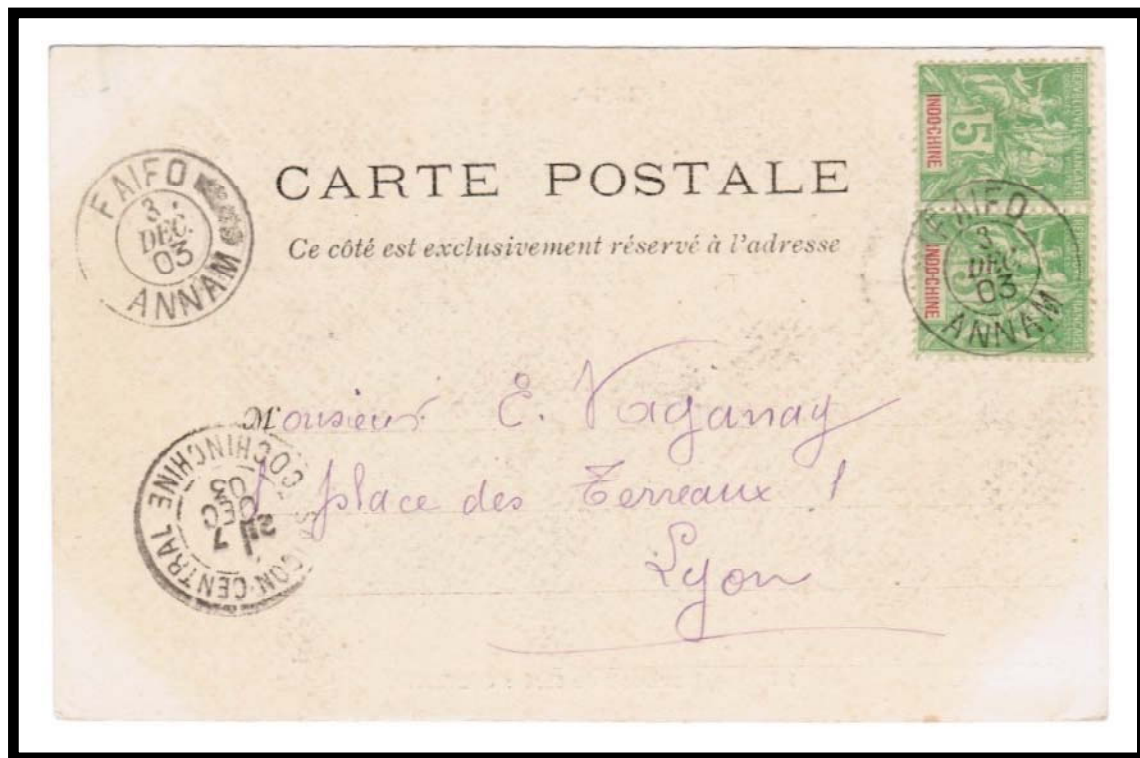 CARTE POSTALE
Ce côté est exclusivement réservé à l'adresse
FAIFO
3
DEC.
03
ANNAM
INDO-CHINE
5
INDO-CHINE
5
FAIFO
3
DEC.
03
ANNAM
Monsieur E. Vaganay
1 place des Terreaux 1
Lyon
SAIGON-CENTRAL
COCHINCHINE
7
DEC
03